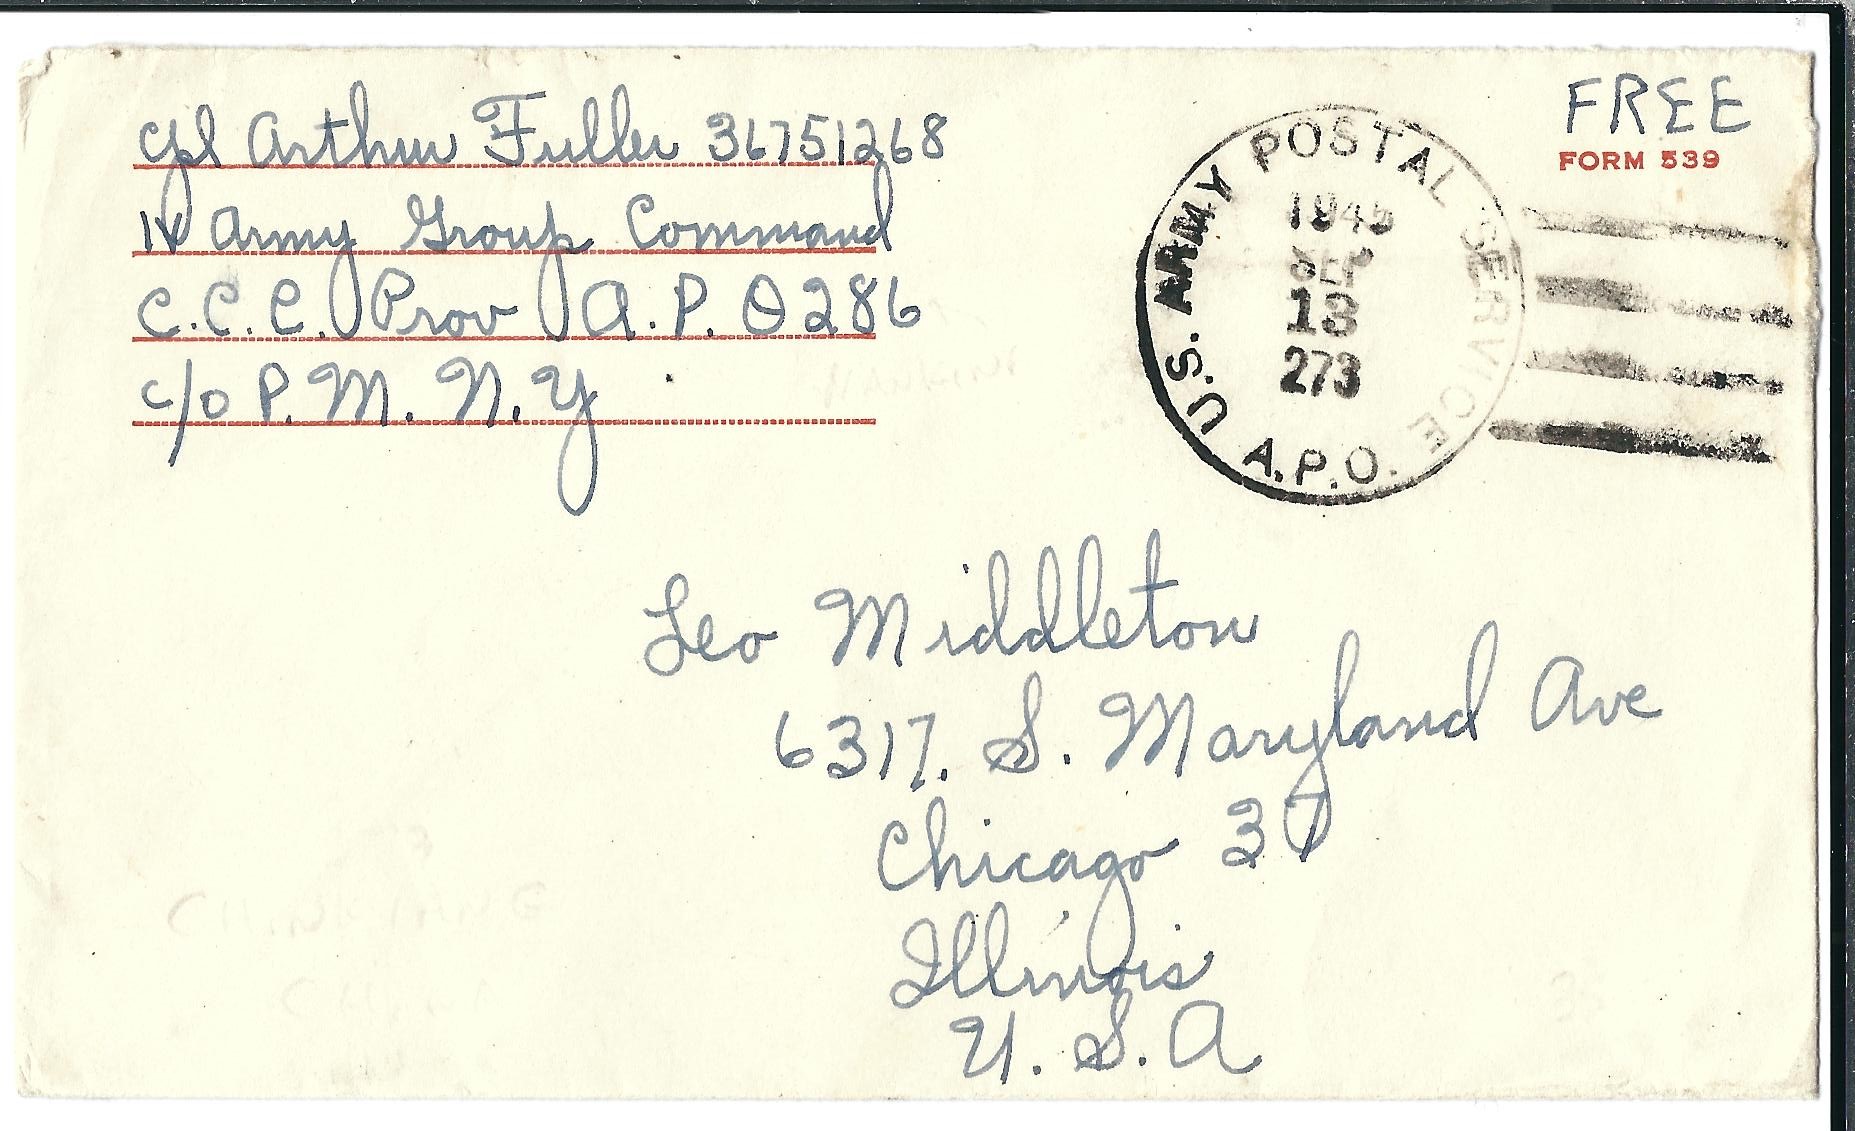 Cpl Arthur Fuller 36751268
Army Group Command
C.C.C. (Prov) A.P.O 286
c/o P.M. N.Y
FREE
FORM 539
U.S. ARMY POSTAL SERVICE
1945
SEP
13
273
A.P.O.
Leo Middleton
6317. S. Maryland Ave
Chicago 37
Illinois
U.S.A